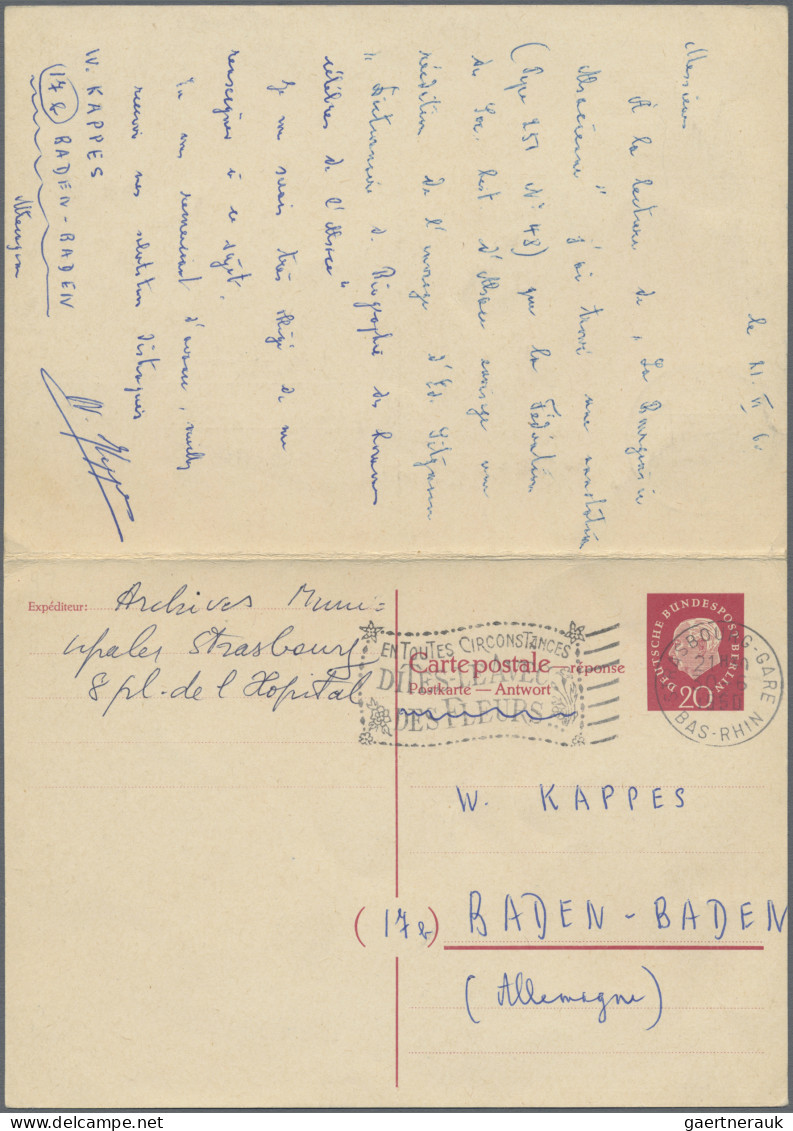 le 21. VI 60
Messieurs
A la lecture de "La Bourgeoisie
Alsacienne" j'ai trouvé une annotation
(Page 251 N° 48) que la Fédération
des Soc. hist. d'Alsace envisage une
réédition de l'ouvrage d'Ed. Sitzmann
"Dictionnaire de Biographie des hommes
célèbres de l'Alsace"
Je vous serais très obligé de me
renseigner à ce sujet.
En vous remerciant d'avance, veuillez
recevoir mes salutations distinguées
W. KAPPES
(17b) BADEN-BADEN
Allemagne
W. Kappes
Expéditeur: Archives Muni=
cipales Strasbourg
8 pl. de l'Hopital
EN TOUTES CIRCONSTANCES
DITES-LE AVEC
DES FLEURS
Carte postale réponse
Postkarte — Antwort
DEUTSCHE BUNDESPOST BERLIN
20
STRASBOURG-GARE
BAS-RHIN
W. KAPPES
(17b) BADEN-BADEN
(Allemagne)
gaertnerauk